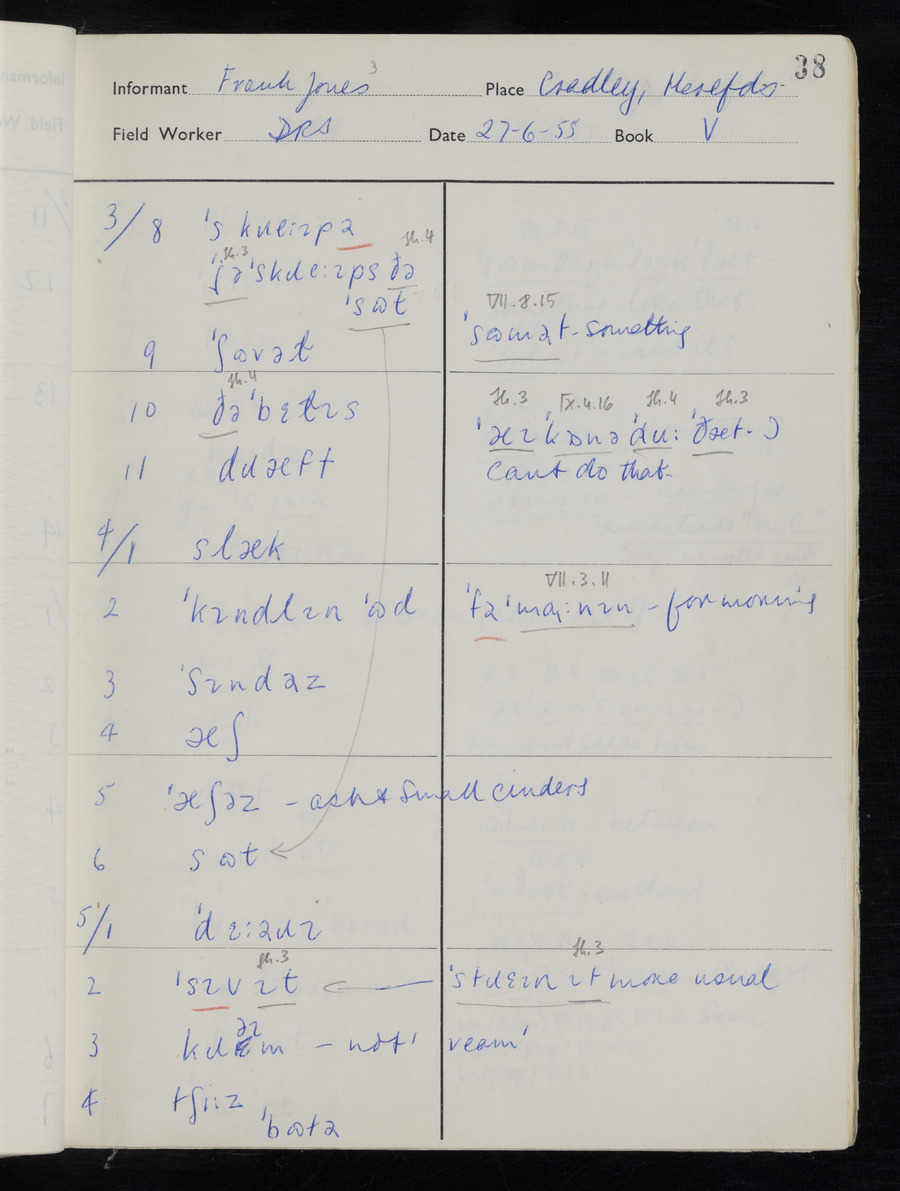 38
Informant Frank Jones 3 Place Cradley, Herefds.
Field Worker DRS Date 27-6-55 Book V
3/8 ˈskɹeːɪpə
sh.3 sh.4
ʃəˈskɹeːɪps ðə
ˈsɷt
VII.8.15
ˈsɷmət - something
9 ˈʃɷvəɫ
sh.4
10 ðəˈbɛɫɪs
sh.3 IX.4.16 sh.4 sh.3
11 dɹæft
cant do that.
4/1 slæk
VII.3.11
2 ˈkɪndlɪn ˈɷd
- for morning
3 ˈsɪndəz
4 æʃ
5 ˈæʃəz - ash & small cinders
6 sɷt
5/1 ˈdɛːəɹɪ
sh.3 sh.3
2 ˈsɪv ɪt
ˈstɹɛɪn ɪt more usual
3 - not 'ream'
4 tʃiːz
ˈbɷtə